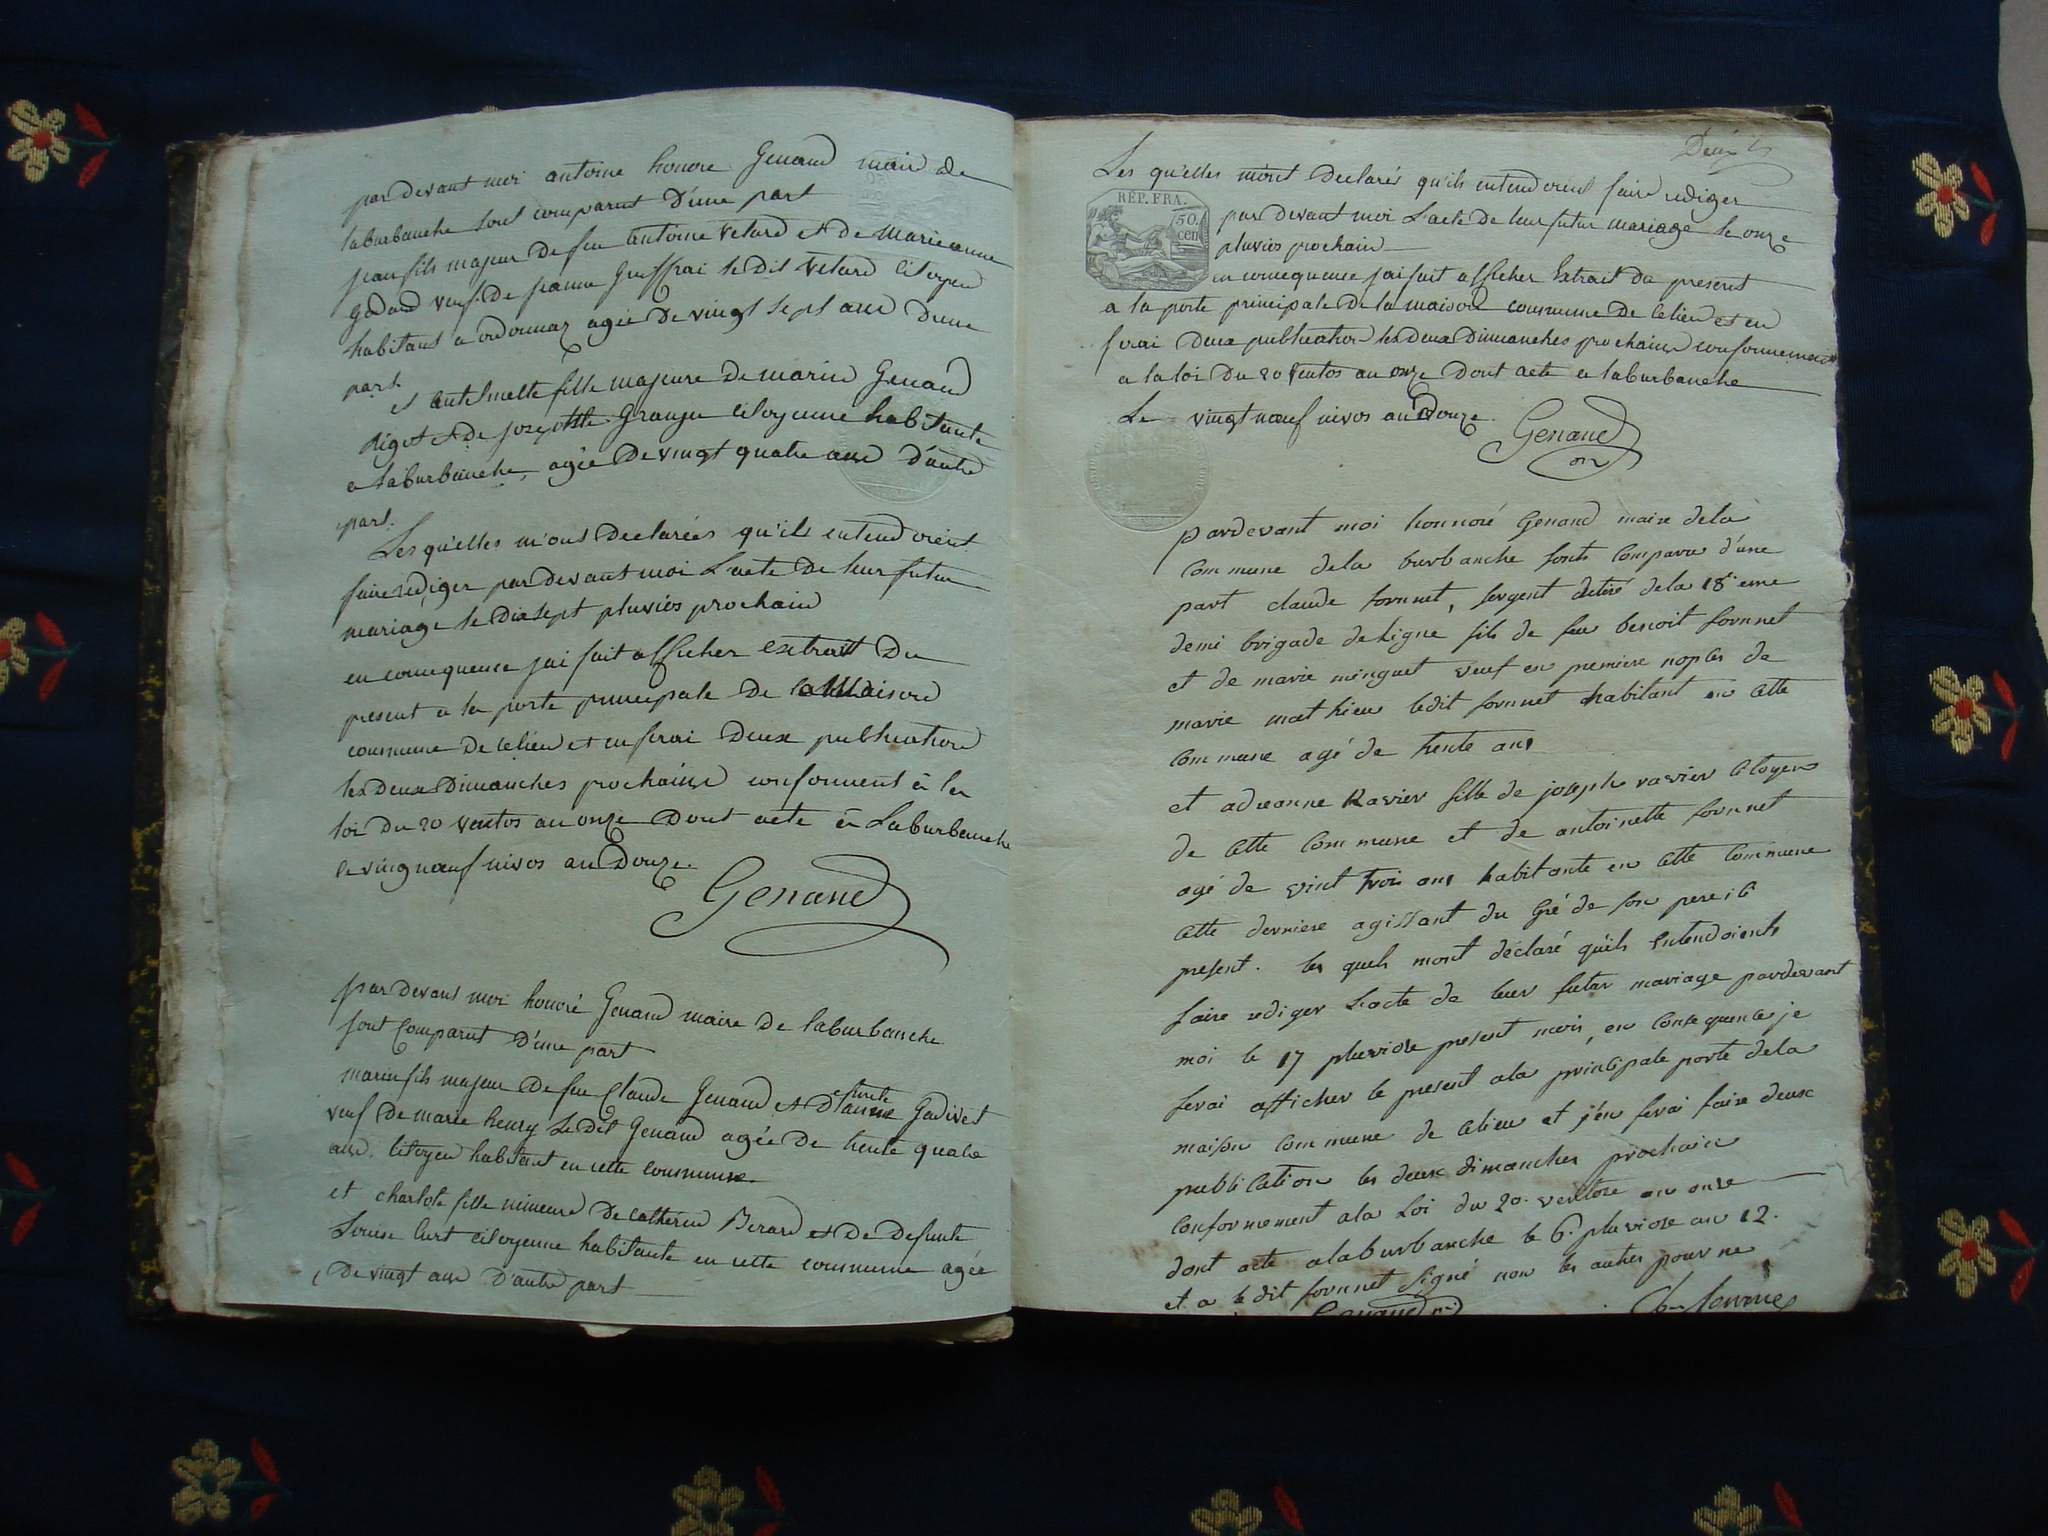 par devant moi antoine honore Genand maire de
laburbanche sont comparut d'une part
jean fils majeur de feu antoine Velard et de Marieanne
veuf de jeanne le dit Velard Citoyen
habitant a ordonnaz agée de vingt sept ans d'une
part.
et antelmette fille majeure de marin Genand
Rigot et de Grange Citoyenne habitante
a laburbanche, agée de vingt quatre ans d'autre
part.
Les qu'elles m'ons declarées qu'ils entendoient
faire rediger par devant moi L'acte de leur futur
mariage le dix sept pluvios prochain
en consequense jai fait afficher extrait du
present a la porte principale de la Maison
commune de celieu et en ferai deux publication
les deux Dimanches prochains conforment à la
loi du 20 ventos an onze dont acte à Laburbanche
le vingt nœuf nivos an Douze.
Genand
par devans moi honoré Genand maire de laburbanche
sont comparut d'une part
marin fils majeur de feu Claude Genand et d'anne Gadivet
defunte
veuf de marie henry Le dit Genand agée de trente quatre
ans. Citoyen habitant en cette commune
et charlote fille mineure de cathérin Berard et de defunte
Louise Curt citoyenne habitante en cette commune agée
de vingt ans d'autre part
Les qu'elles m'ont declarés qu'ils entendoient faire rediger
RÉP. FRA.
50.
cen
par devant moi L'acte de leur futur mariage le onze
pluvios prochain
en consequense jai fait afficher Extrait du present
a la porte principale de la maison commune de celieu et en
ferai deux publication les deux Dimanches prochains conformement
a la loi du 20 ventos an onze Dont acte a laburbanche
Le vingt nœuf nivos an Douze
Genand
pardevant moi honnoré Genand maire dela
commune dela burbanche sonts comparu d'une
part claude fornnet, sergent de la 18.eme
demi brigade de Ligne fils de feu benoit fornnet
et de marie minguet veuf en premiere nopces de
marie mathieu ledit fornnet habitant en cette
commune agé de trente ans
et adreanne Ravier fille de joseph ravier citoyen
de cette commune et de antoinette fornnet
agé de vint trois ans habitante en cette commune
cette derniere agissant du gré de son pere ici
present. les quels mont déclaré qu'ils entendoients
faire rediger L'acte de leur futur mariage pardevant
moi le 17 pluviose present mois, en consequence je
ferai afficher le present ala principale porte dela
maison commune de celieu et j'en ferai faire deux
publication les deux dimanches prochain
conformement ala Loi du 20. ventose an onze
dont acte alaburbanche le 6. pluviose an 12.
et a le dit fornnet signé non les autres pour ne
Genand